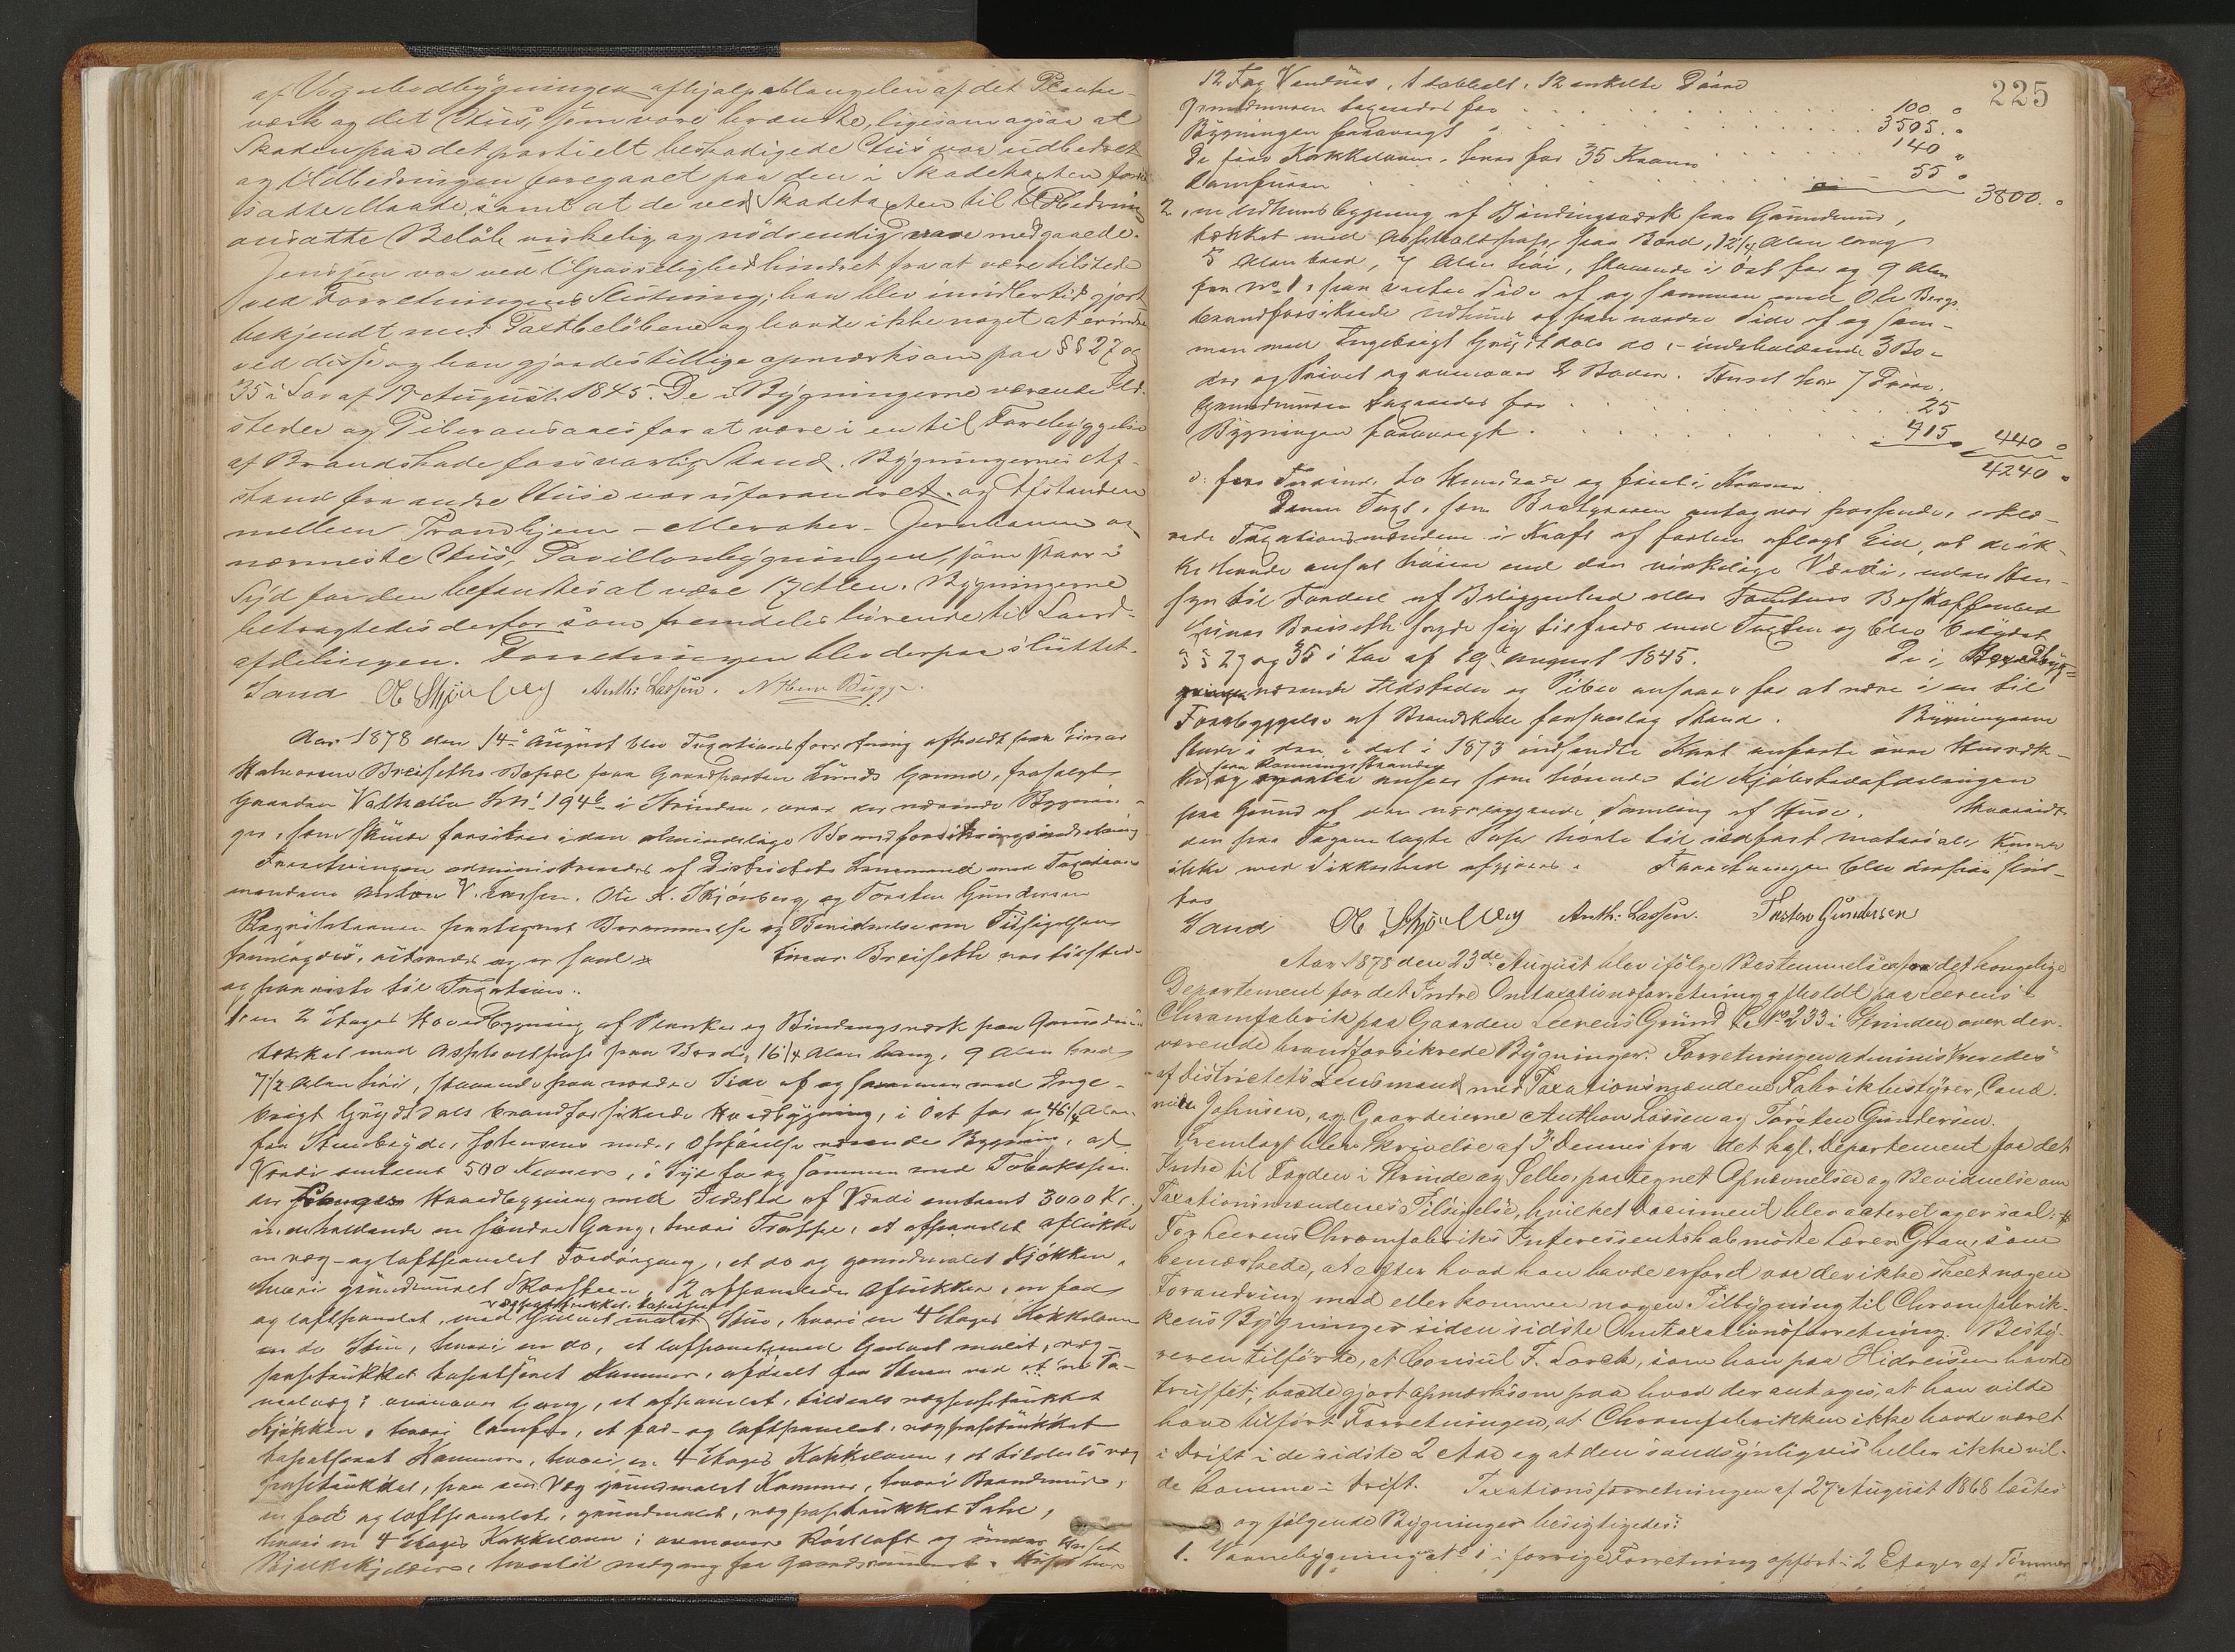 af Vognbodbygningen afhjalp Manglen af det Planke-
værk og det Huus, som vare brændte, ligesom ogsaa at
Skaden paa det partielt beskadigede Huus var udbedret
og Udbedringen foregaaet paa den i Skadetaxten forud-
satte Maade, samt at de ved Skadetaxten til Udbedring
ansatte Beløb virkelig og nödvendig vare medgaaede.
Jenssen var ved Upasselighed hindret fra at være tilstede
ved Forretningens Slutning; han blev imidlertid gjort
bekjendt med Taxtbelöbene og havde ikke noget at erindre
ved disse og han gjordes tillige opmærksom paa §§ 27 og
35 i Lov af 19 August 1845. De i Bygningerne værende Ild-
steder og Piber ansaaes for at være i en til Forebyggelse
af Brandskade forsvarlig Stand. Bygningernes Af-
stand fra andre Huse var uforandret og Afstanden
mellem Trondhjem - Meraker - Jernbanen og
nærmeste Huus, Pavillonbygningen, som staar i
Syd for den befandtes at være 17 Alen. Bygningerne
betragtedes derfor som fremdeles hörende til Land-
afdelingen. Forretningen blev derpaa sluttet.
Sand O K Skjönberg Anth: Lassen. N Brun Bügge.
Aar 1878 den 14de August blev Taxationsforretning afholdt paa Einar
Halvorsen Breiseths Bopæl paa Gaardparten Lunds Grund, fraskilt
Gaarden Valhalla LNr 194b i Strinden, over der værende Bygnin-
ger, som skulde forsikres i den almindelige Brandforsikringsindretning
Forretningen administreredes af Districtets Lensmand med Taxations-
mændene Anton V. Lassen, Ole K. Skjönberg og Torsten Gundersen
Requisitionen paategnet Berammelse og Bevidnelse om Tilsigelsen
fremlagdes, acteredes og er saal.
Einar Breiseth var tilstede
og paaviste til Taxation:
1, en 2 Etages Hovedbygning af Planker og Bindingsværk paa Grundmuur
tækket med Asphaltpap paa Bord, 16 1/4 Alen lang, 9 Alen bred
7 1/2 Alen höi, staaende paa nordre Side af og sammen med Inge-
brigt Grydtdals brandforsikrede Hovedbygning, i Öst for og 46 1/4 Alen
fra Steenbryder Johansens under Opförelse værende Bygning, af
Værdi omtrent 500 Kroner, i Syd for og sammen med Tobakspin-
der Hovedbygning med Ildsted af Værdi omtrent 3000 Kr.
indeholdende en søndre Gang, hvori Trappe, et afpanelet Aflukke
en væg- og loftpanelet Fordörgang, et do og grundmalet Kjökken,
hvori grundmuret Skorsteen, 2 afpanelede Aflukker, en fad
og loftpanelet, med Gulvet malet, Stue, hvori en 4 Etages Kakkelovn
en do Stue, hvori en do, et loftpanelet, med Gulvet malet, væg-
papstrukket tapetseret Kammer,
ovenover Gang, et afpanelet, tildeels vægpapstrukket
Kjökken, hvori Comfur, et fad- og loftpanelet, vægpapstrukket
tapetseret Kammer, hvori en 4 Etages Kakkelovn, et tildeels væg-
papstrukket, paa een Væg grundmalet Kammer, hvori Brandmuur,
en fad og loftpanelet, grundmalet, vægpapstrukket Sahl,
hvori en 4 Etages Kakkelovn; ovenover Röstloft og under Huset
Bjelkekjelder, hvortil nedgang fra Gaardsrummet. Huset har
225
12 Fag Vinduer, 1 dobbelt, 12 enkelte Döre
Grundmuren taxeredes for 100 "
Bygningen forövrigt " 3505. "
De fire Kakkelovne, hver for 35 Kroner 140 "
Comfuren 55 " 3800. "
2, en Udhuusbygning af Bindingsværk paa Grundmuur,
tækket med Asphaltpap paa Bord, 12 1/4 Alen lang
5 Alen bred, 7 Alen höi, staaende i Öst for og 9 Alen
fra No 1, paa vestre Side af og sammen med Ole Bergs
brandforsikrede Udhuus og paa nordre Side af og sam-
men med Ingebrigt Grydtdals do, - indeholdende 3 Bo-
der og Privet og ovenover 2 Boder. Huset har 7 Döre.
Grundmuren taxeredes for 25
Bygningen forövrigt 415 440 "
4240 "
o: fire Tusinde to Hundrede og firti Kroner
Denne Taxt, som Brandcassen antog var passende, erklæ-
rede Taxationsmændene i Kraft af forhen aflagt Eid, at de ik-
ke havde ansat höiere end den virkelige Værdi, uden Hen-
syn til Fordeel af Beliggenhed eller Tomtens Beskaffenhed
Einar Breiseth sagde sig tilfreds med Taxten og blev betydet
§§ 27 og 35 i Lov af 19 August 1845. De i Hovedbyg-
ningen værende Ildsteder og Piber ansaaes for at være i en til
Forebyggelse af Brandskade forsvarlig Stand. Bygningerne
staar i den, i det i 1873 indsendte Kart anførte svære Huusræk-
ke paa Ranningsstranden og ansees som hörende til Kjöbstadafdelingen
paa Grund af den nærliggende Samling af Huse. Hvorvidt
den paa Tagene lagte Pap hörte til ildfast Materiale, kunde
ikke med Sikkerhed afgjöres. Forretningen blev derpaa slut-
tet
Sand O K Skjönberg Anth: Lassen. Torsten Gundersen
Aar 1878 den 23de August blev ifölge Bestemmelse fra det kongelige
Departement for det Indre Omtaxationsforretning afholdt paa Leerens
Chromfabrik paa Gaarden Leerens Grund LNo 233 i Strinden over der-
værende brandforsikrede Bygninger. Forretningen administreredes
af Districtets Lensmand med Taxationsmændene Fabrikbestyrer, Cand.
min. Johnsen, og Gaardeierne Anthon Lassen og Torsten Gundersen.
Fremlagt blev Skrivelse af 3 Dennes fra det kgl. Departement for det
Indre til Fogden i Strinde og Selbo, paategnet Opnævnelse og Bevidnelse om
Taxationsmændenes Tilsigelse, hvilket Document blev acteret og er saal:
For Leerens Chromfabriks Interessentskab mödte Lærer Gran, som
bemærkede, at efter hvad han havde erfaret var der ikke skeet nogen
Forandring med eller kommen nogen Tilbygning til Chromfabrik-
kens Bygninger siden sidste Omtaxationsforretning. Besty-
reren tilförte, at Consul F. Lorck, som han paa Hidreisen havde
truffet, havde gjort opmærksom paa hvad der antages, at han vilde
have tilfört Forretningen, at Chromfabrikken ikke havde været
i Drift i de sidste 2 Aar og at den sandsynligvis heller ikke vil-
de komme i Drift. Taxationsforretningen af 27 August 1868 læstes
og fölgende Bygninger besigtigedes:
1. Vaaneb ygning No 1 i forrige Forretning opfört i 2 Etager af Tömmer